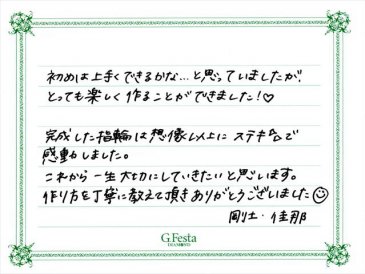 初めは上手くできるかな…と思っていましたが、
とっても楽しく作ることができました！♡
完成した指輪は想像以上にステキ☆で
感動しました。
これから一生大切にしていきたいと思います。
作り方を丁寧に教えて頂きありがとうございました☺
剛士・佳那
G.Festa
DIAMOND